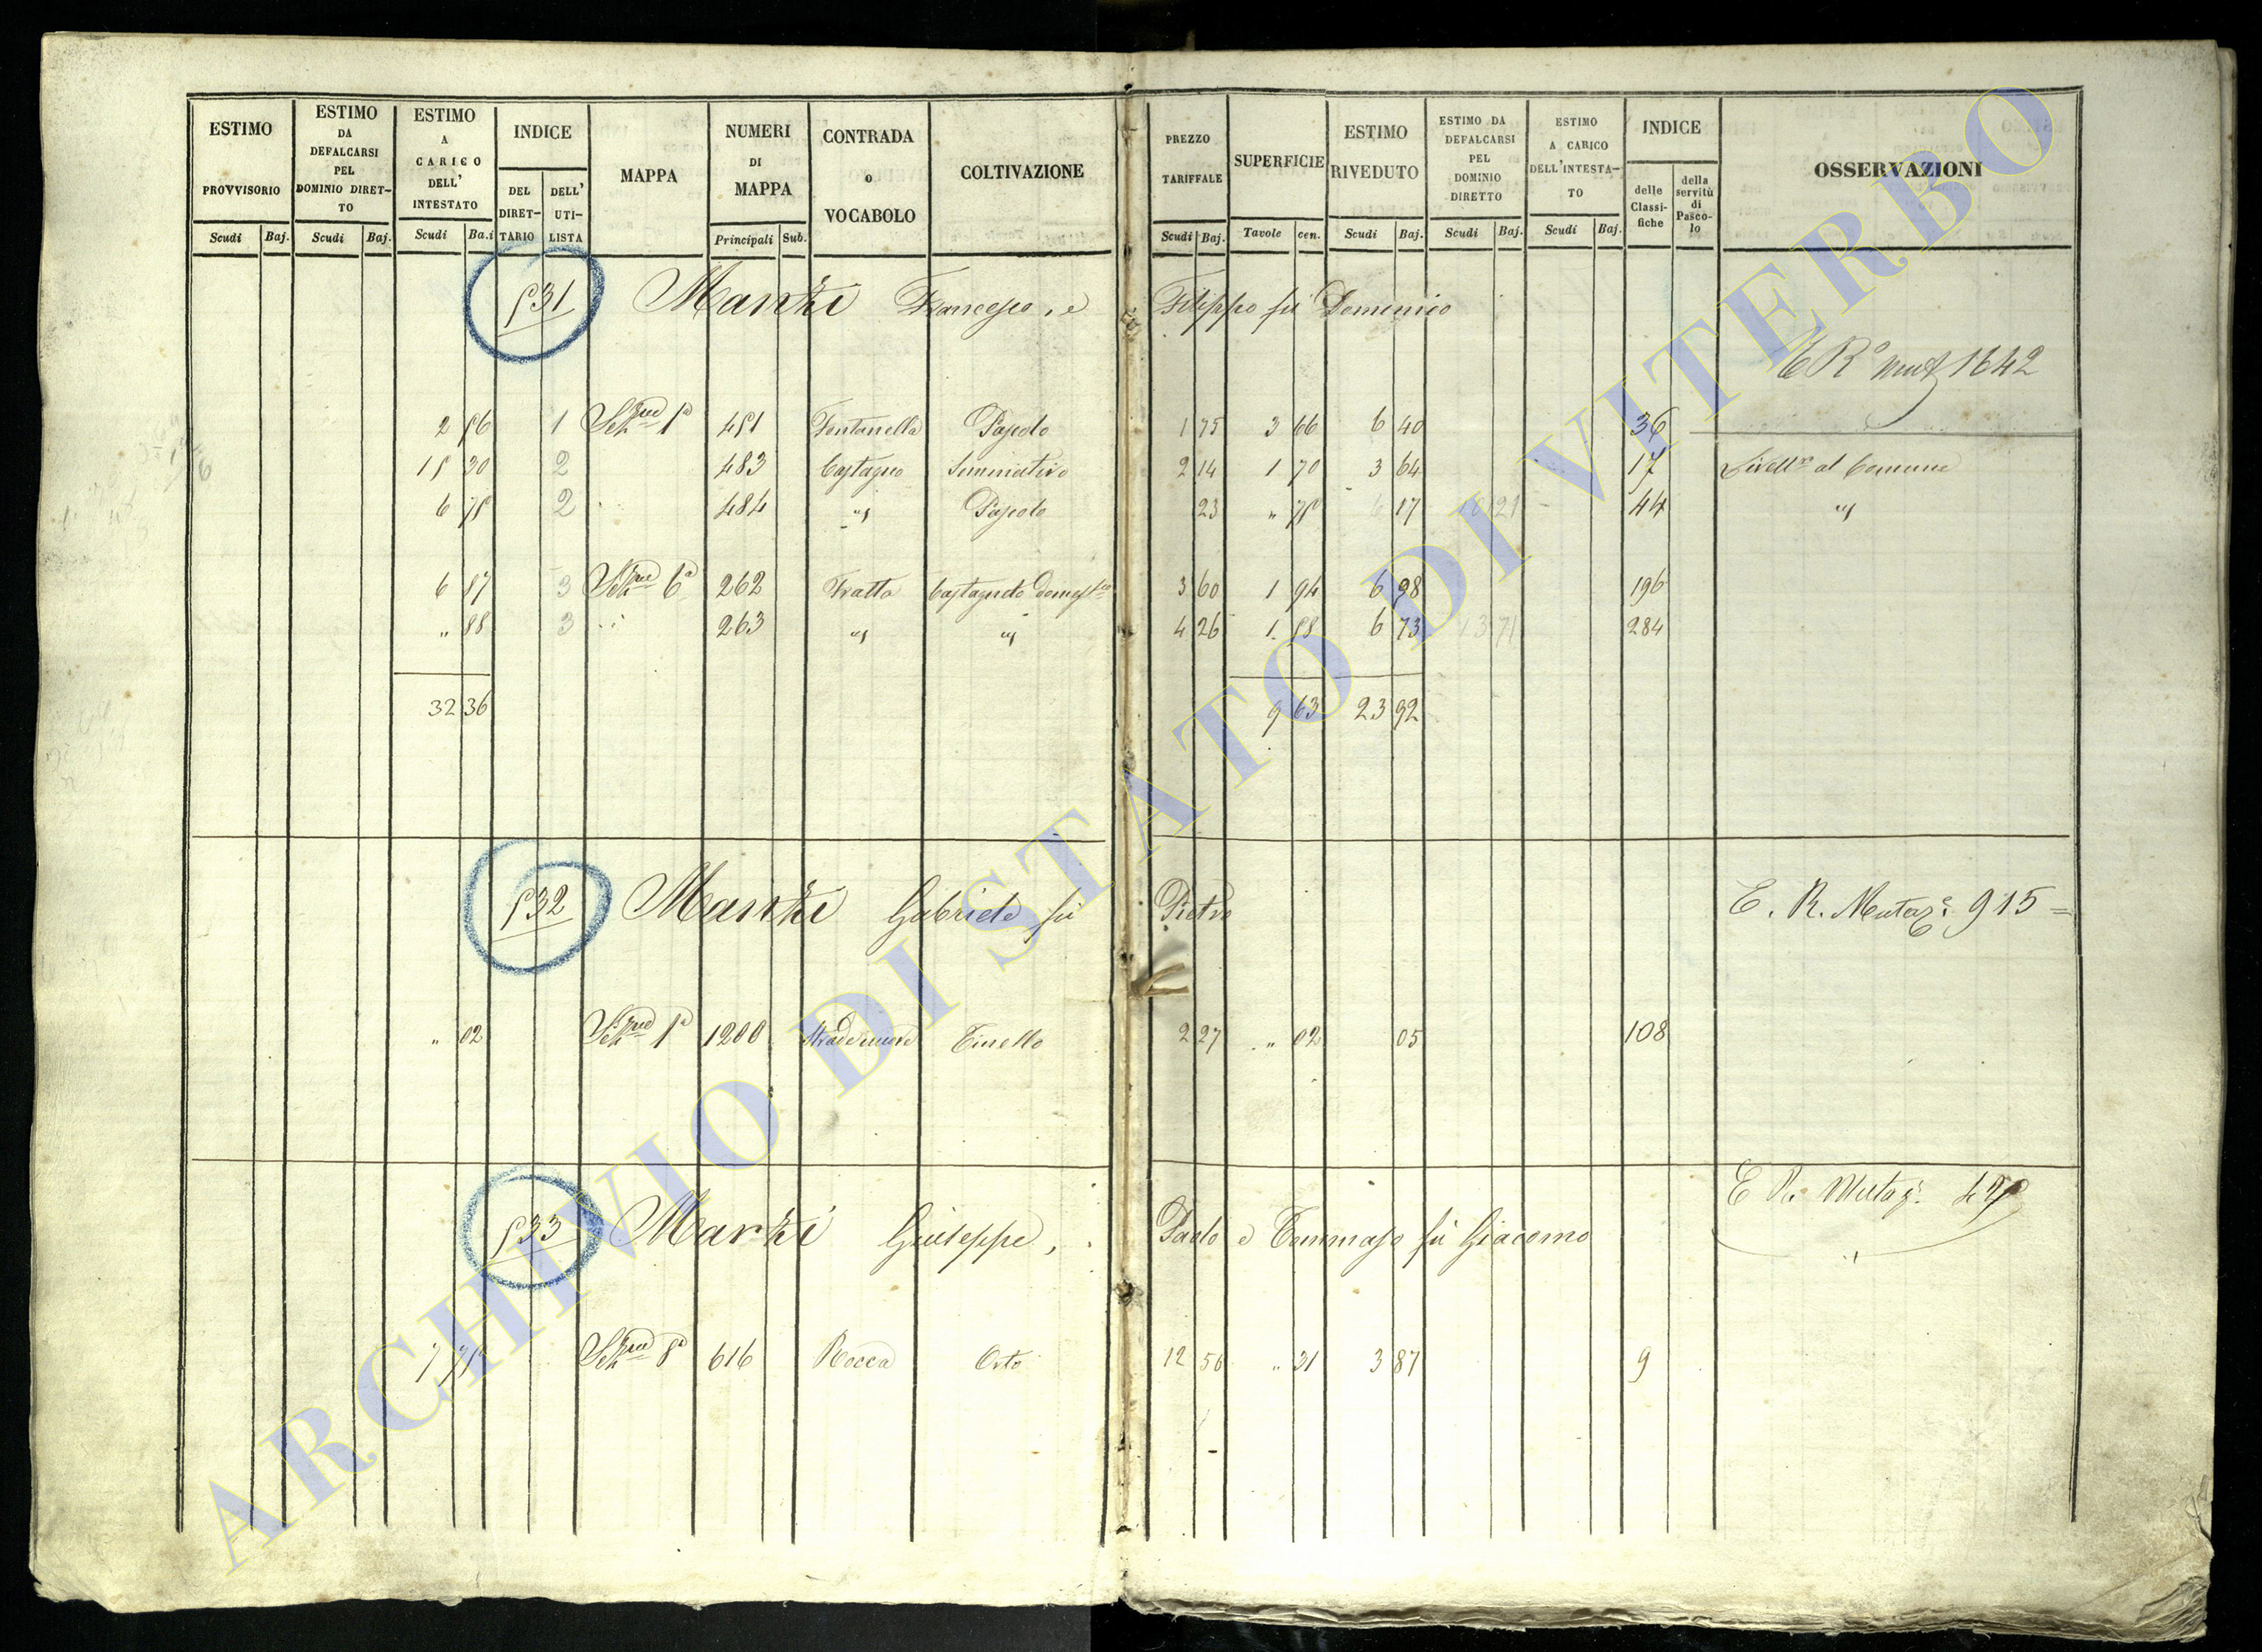 ESTIMO PROVVISORIO
ESTIMO DA DEFALCARSI PEL DOMINIO DIRET-TO
ESTIMO A CARICO DELL' INTESTATO
INDICE
DEL DIRET-TARIO
DELL' UTI-LISTA
MAPPA
NUMERI DI MAPPA
CONTRADA o VOCABOLO
COLTIVAZIONE
PREZZO TARIFFALE
SUPERFICIE
ESTIMO RIVEDUTO
ESTIMO DA DEFALCARSI PEL DOMINIO DIRETTO
ESTIMO A CARICO DELL'INTESTA-TO
INDICE
delle Classi-fiche
della servitù di Pasco-lo
OSSERVAZIONI
Scudi Baj. Scudi Baj. Scudi Ba.i Principali Sub. Scudi Baj. Tavole cen. Scudi Baj. Scudi Baj. Scudi Baj.
531 Manzi Francesco, e Filippo fù Domenico
E Rº mutz 1642
2 56 1 Sezne 5a 451 Fontanella Pascolo 1 75 3 66 6 40 36
15 30 2 483 Castagno Seminativo 2 14 1 70 3 64 17 Livello al Comune
6 75 2 484 " Pascolo 23 " 75 17 44 "
6 87 3 Sezne 6a 262 Fratta Castagneto Domestco 3 60 1 94 6 98 196
" 88 3 263 " " 4 26 1 58 6 73 13 71 284
32 36 9 63 23 92
532 Manzi Gabriele fù Pietro
E. R. Mutaz: 915 =
" 02 Sezne 5a 1200 Tinello 2 27 " 02 05 108
533 Manzi Giuseppe, Paolo e Tommaso fù Giacomo
E R. Mutaz.
7 75 Sezne 8a 616 Rocca Orto 12 50 " 31 3 87 9
ARCHIVIO DI STATO DI VITERBO